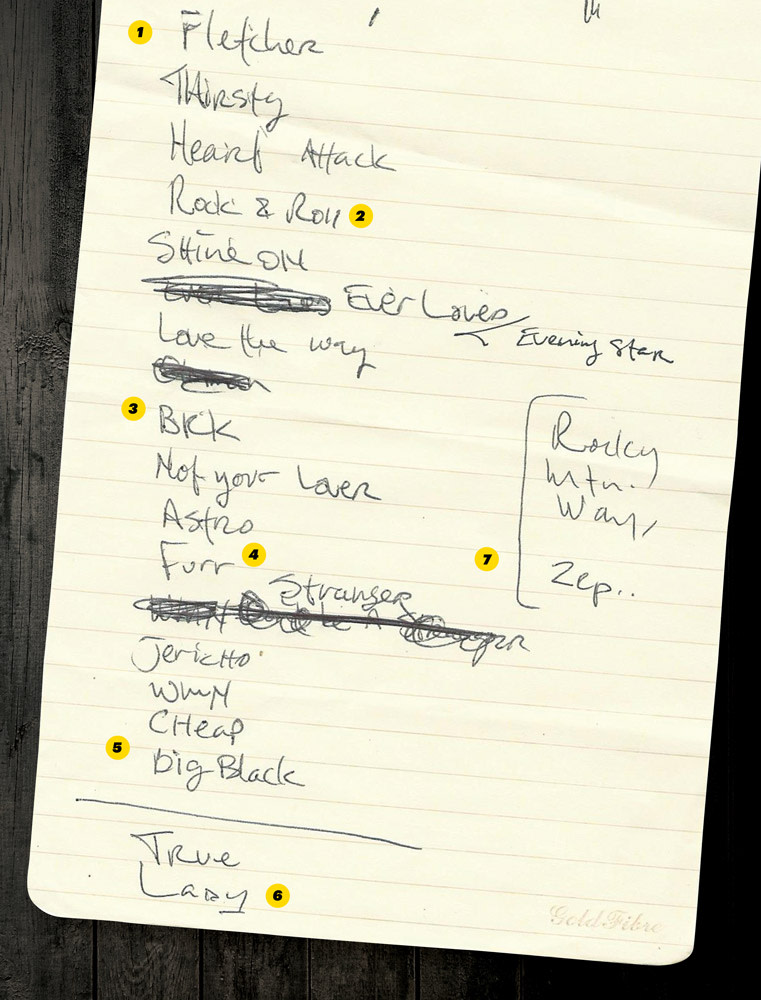 1 Fletcher
Thirsty
Heart Attack
Rock & Roll 2
Shine ON
Ever Loves
Evening Star
Love the way
3 BKK
Not your Lover
Astro
Furr 4
Stranger
Jericho
WMN
CHeap
5 Big Black
True
Lady 6
7
Rocky
Mtn.
Way,
Zep..
Gold Fibre